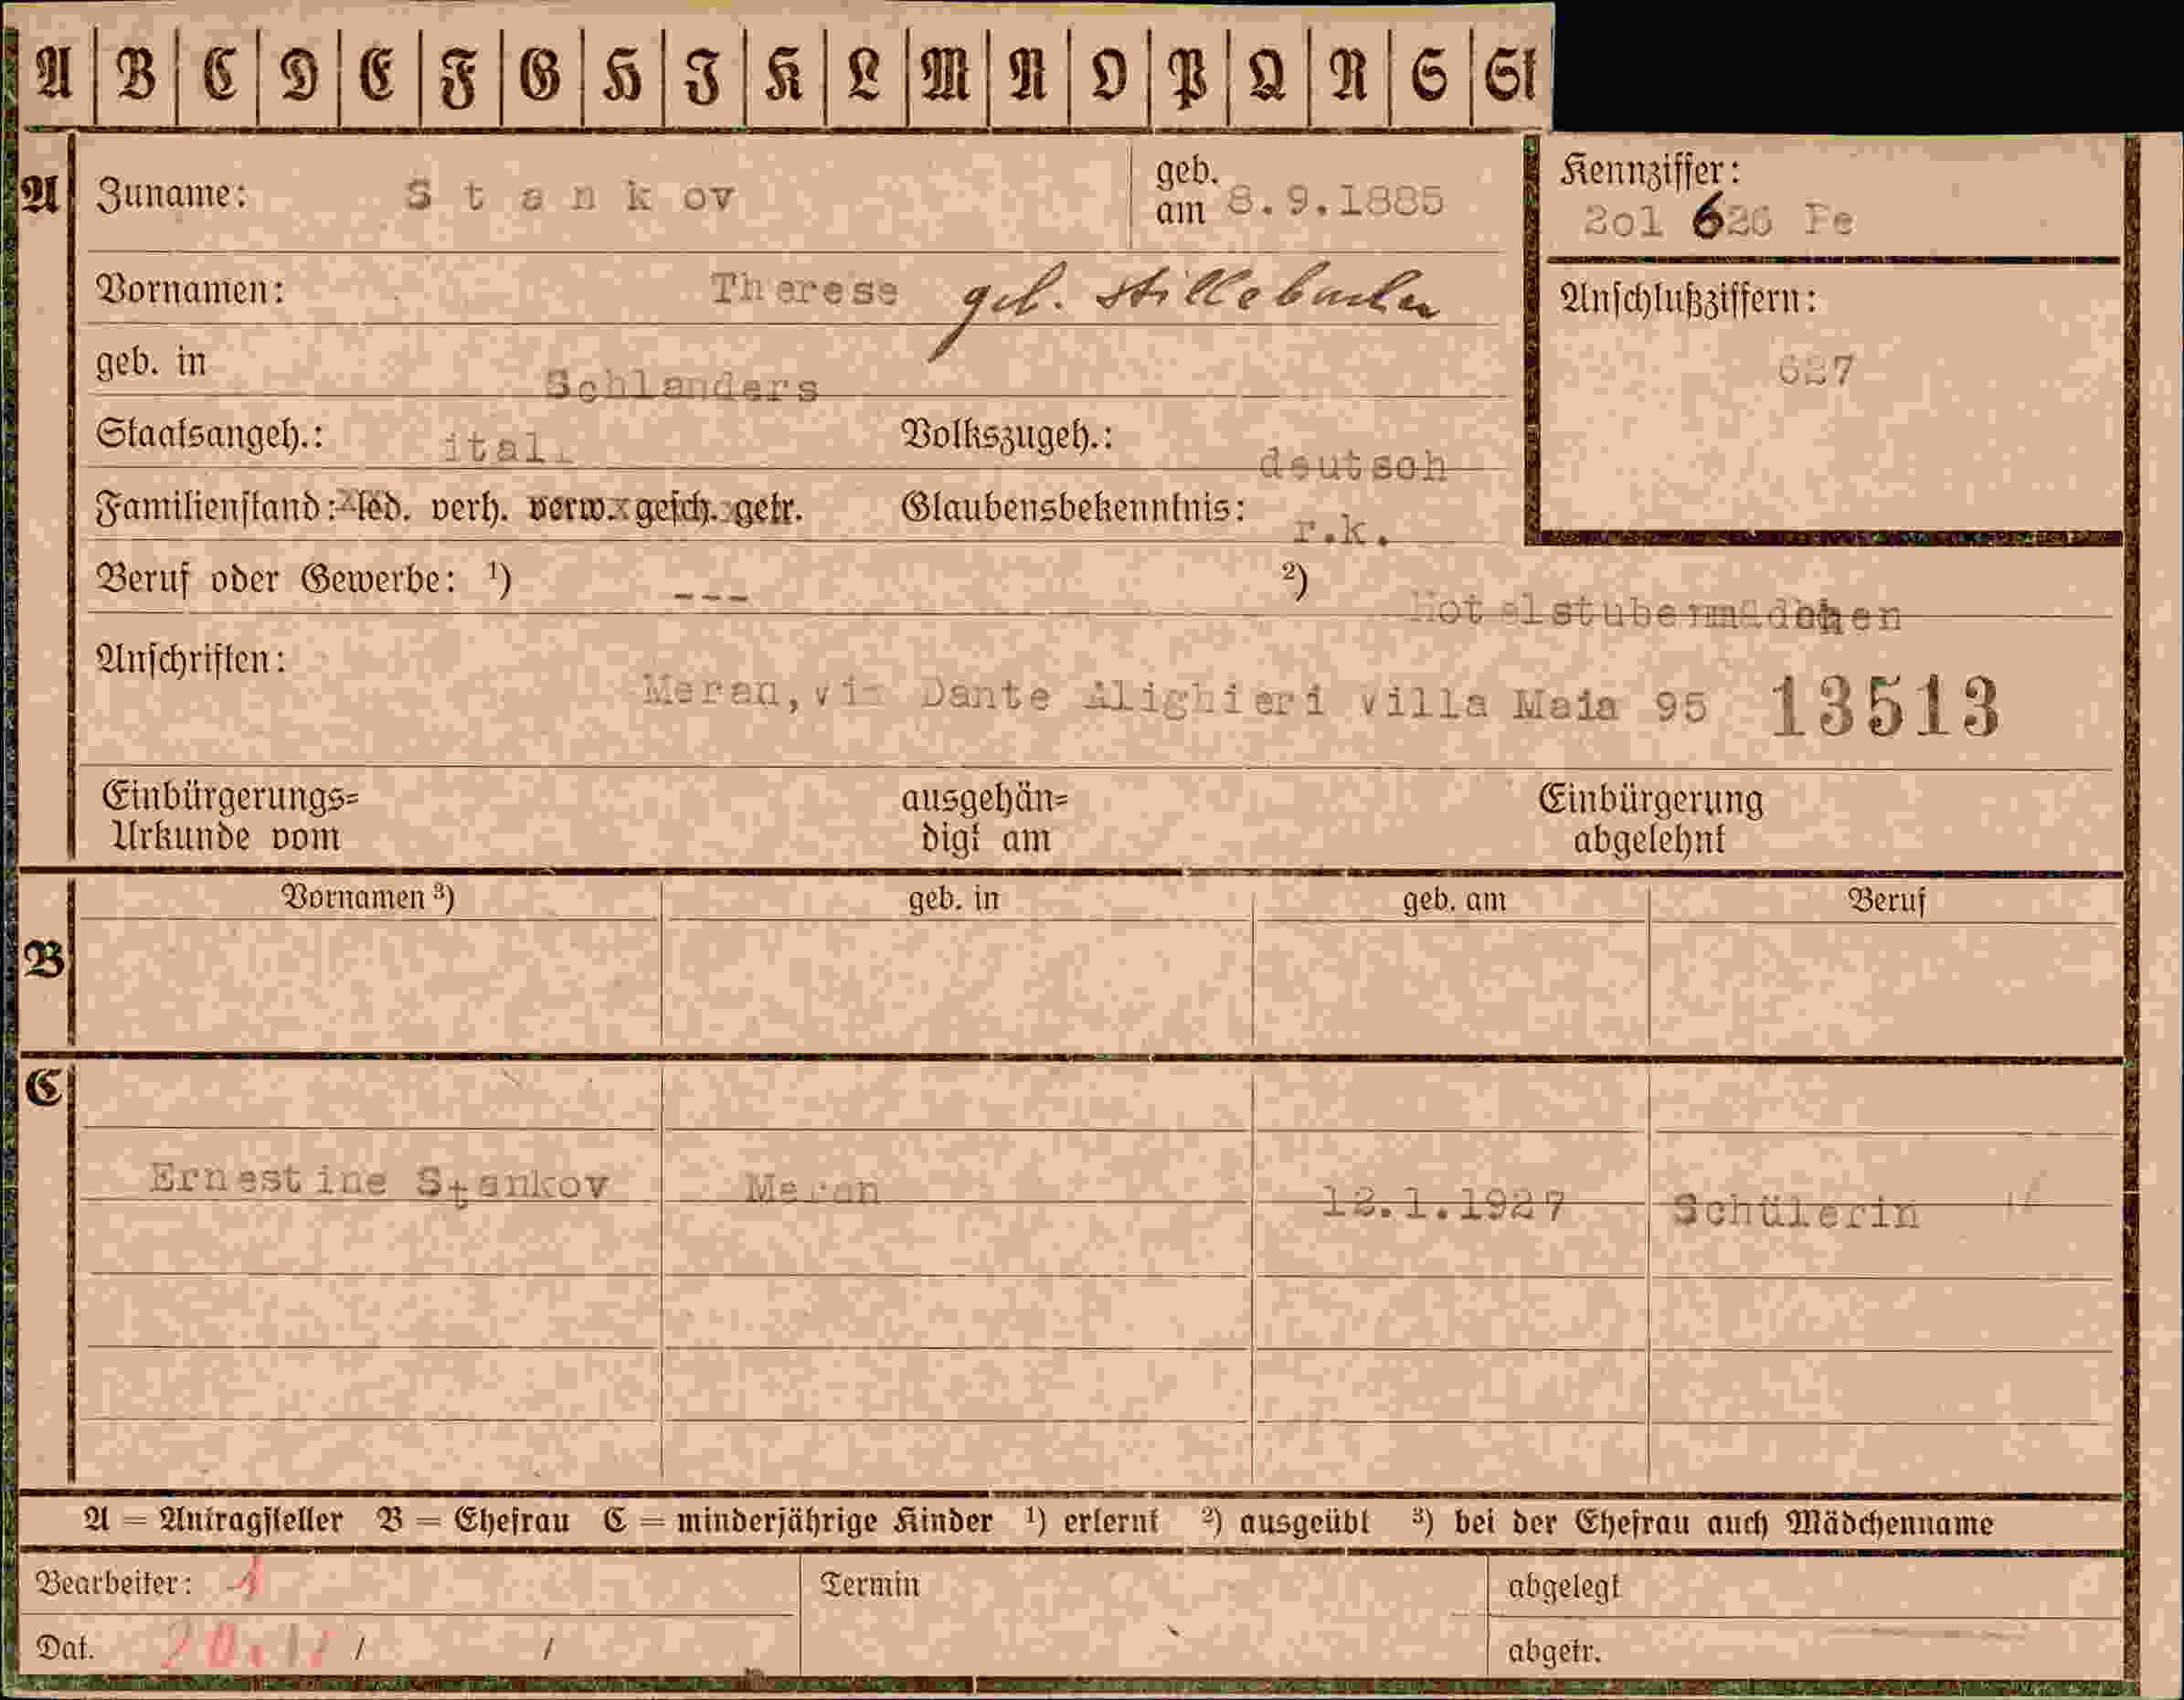 A B C D E F G H I K L M N O P Q R S St
A Zuname: Stankov geb. am 8.9.1885
Kennziffer: 2ol 626 Pe
Vornamen: Therese geb. Stillebacher
Anschlußziffern:
627
geb. in Schlanders
Staatsangeh.: ital. Volkszugeh.: deutsch
Familienstand: led. verh. verw. gesch. getr. Glaubensbekenntnis: r.k.
Beruf oder Gewerbe: 1) --- 2) Hotelstubenmädchen
Anschriften: Meran, via Dante Alighieri villa Maia 95 13513
Einbürgerungs=
Urkunde vom
ausgehän=
digt am
Einbürgerung
abgelehnt
Vornamen 3) geb. in geb. am Beruf
B
C
Ernestine Stankov Meran 12.1.1927 Schülerin
A = Antragsteller B = Ehefrau C = minderjährige Kinder 1) erlernt 2) ausgeübt 3) bei der Ehefrau auch Mädchenname
Bearbeiter: 1 Termin abgelegt
Dat. / / abgetr.